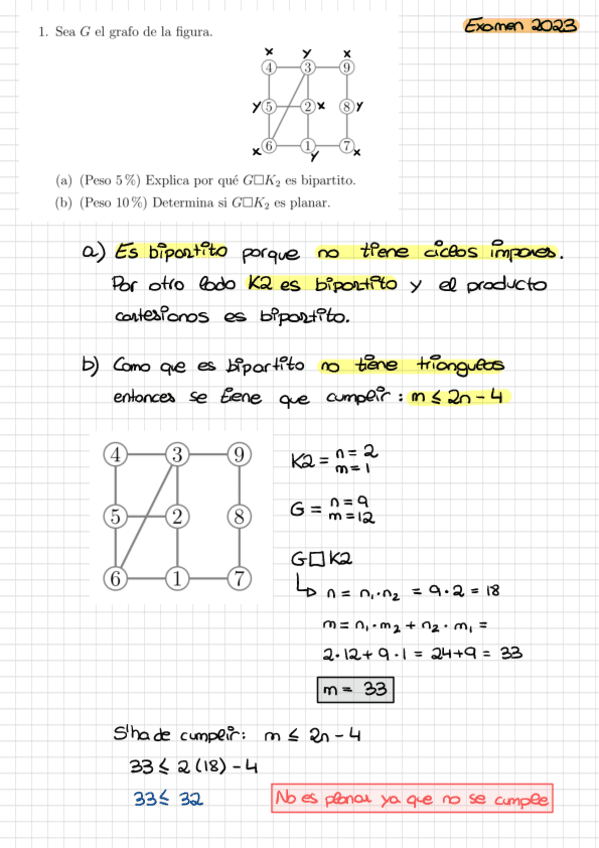 Examen 2023
1. Sea G el grafo de la figura.
x y x
4 3 9
y 5 2 x 8 y
6 1 7
x y x
(a) (Peso 5 %) Explica por qué G□K₂ es bipartito.
(b) (Peso 10 %) Determina si G□K₂ es planar.
a) Es bipartito porque no tiene ciclos impares.
Por otro lado K2 es bipartito y el producto
cartesianos es bipartito.
b) Como que es bipartito no tiene triangulos
entonces se tiene que cumplir: m ≤ 2n - 4
4 3 9
5 2 8
6 1 7
K2 = n = 2
m = 1
G = n = 9
m = 12
G□K2
↳ n = n₁·n₂ = 9·2 = 18
m = n₁·m₂ + n₂·m₁ =
2·12 + 9·1 = 24+9 = 33
m = 33
S'ha de cumplir: m ≤ 2n - 4
33 ≤ 2(18) - 4
33 ≤ 32
No es planar ya que no se cumple